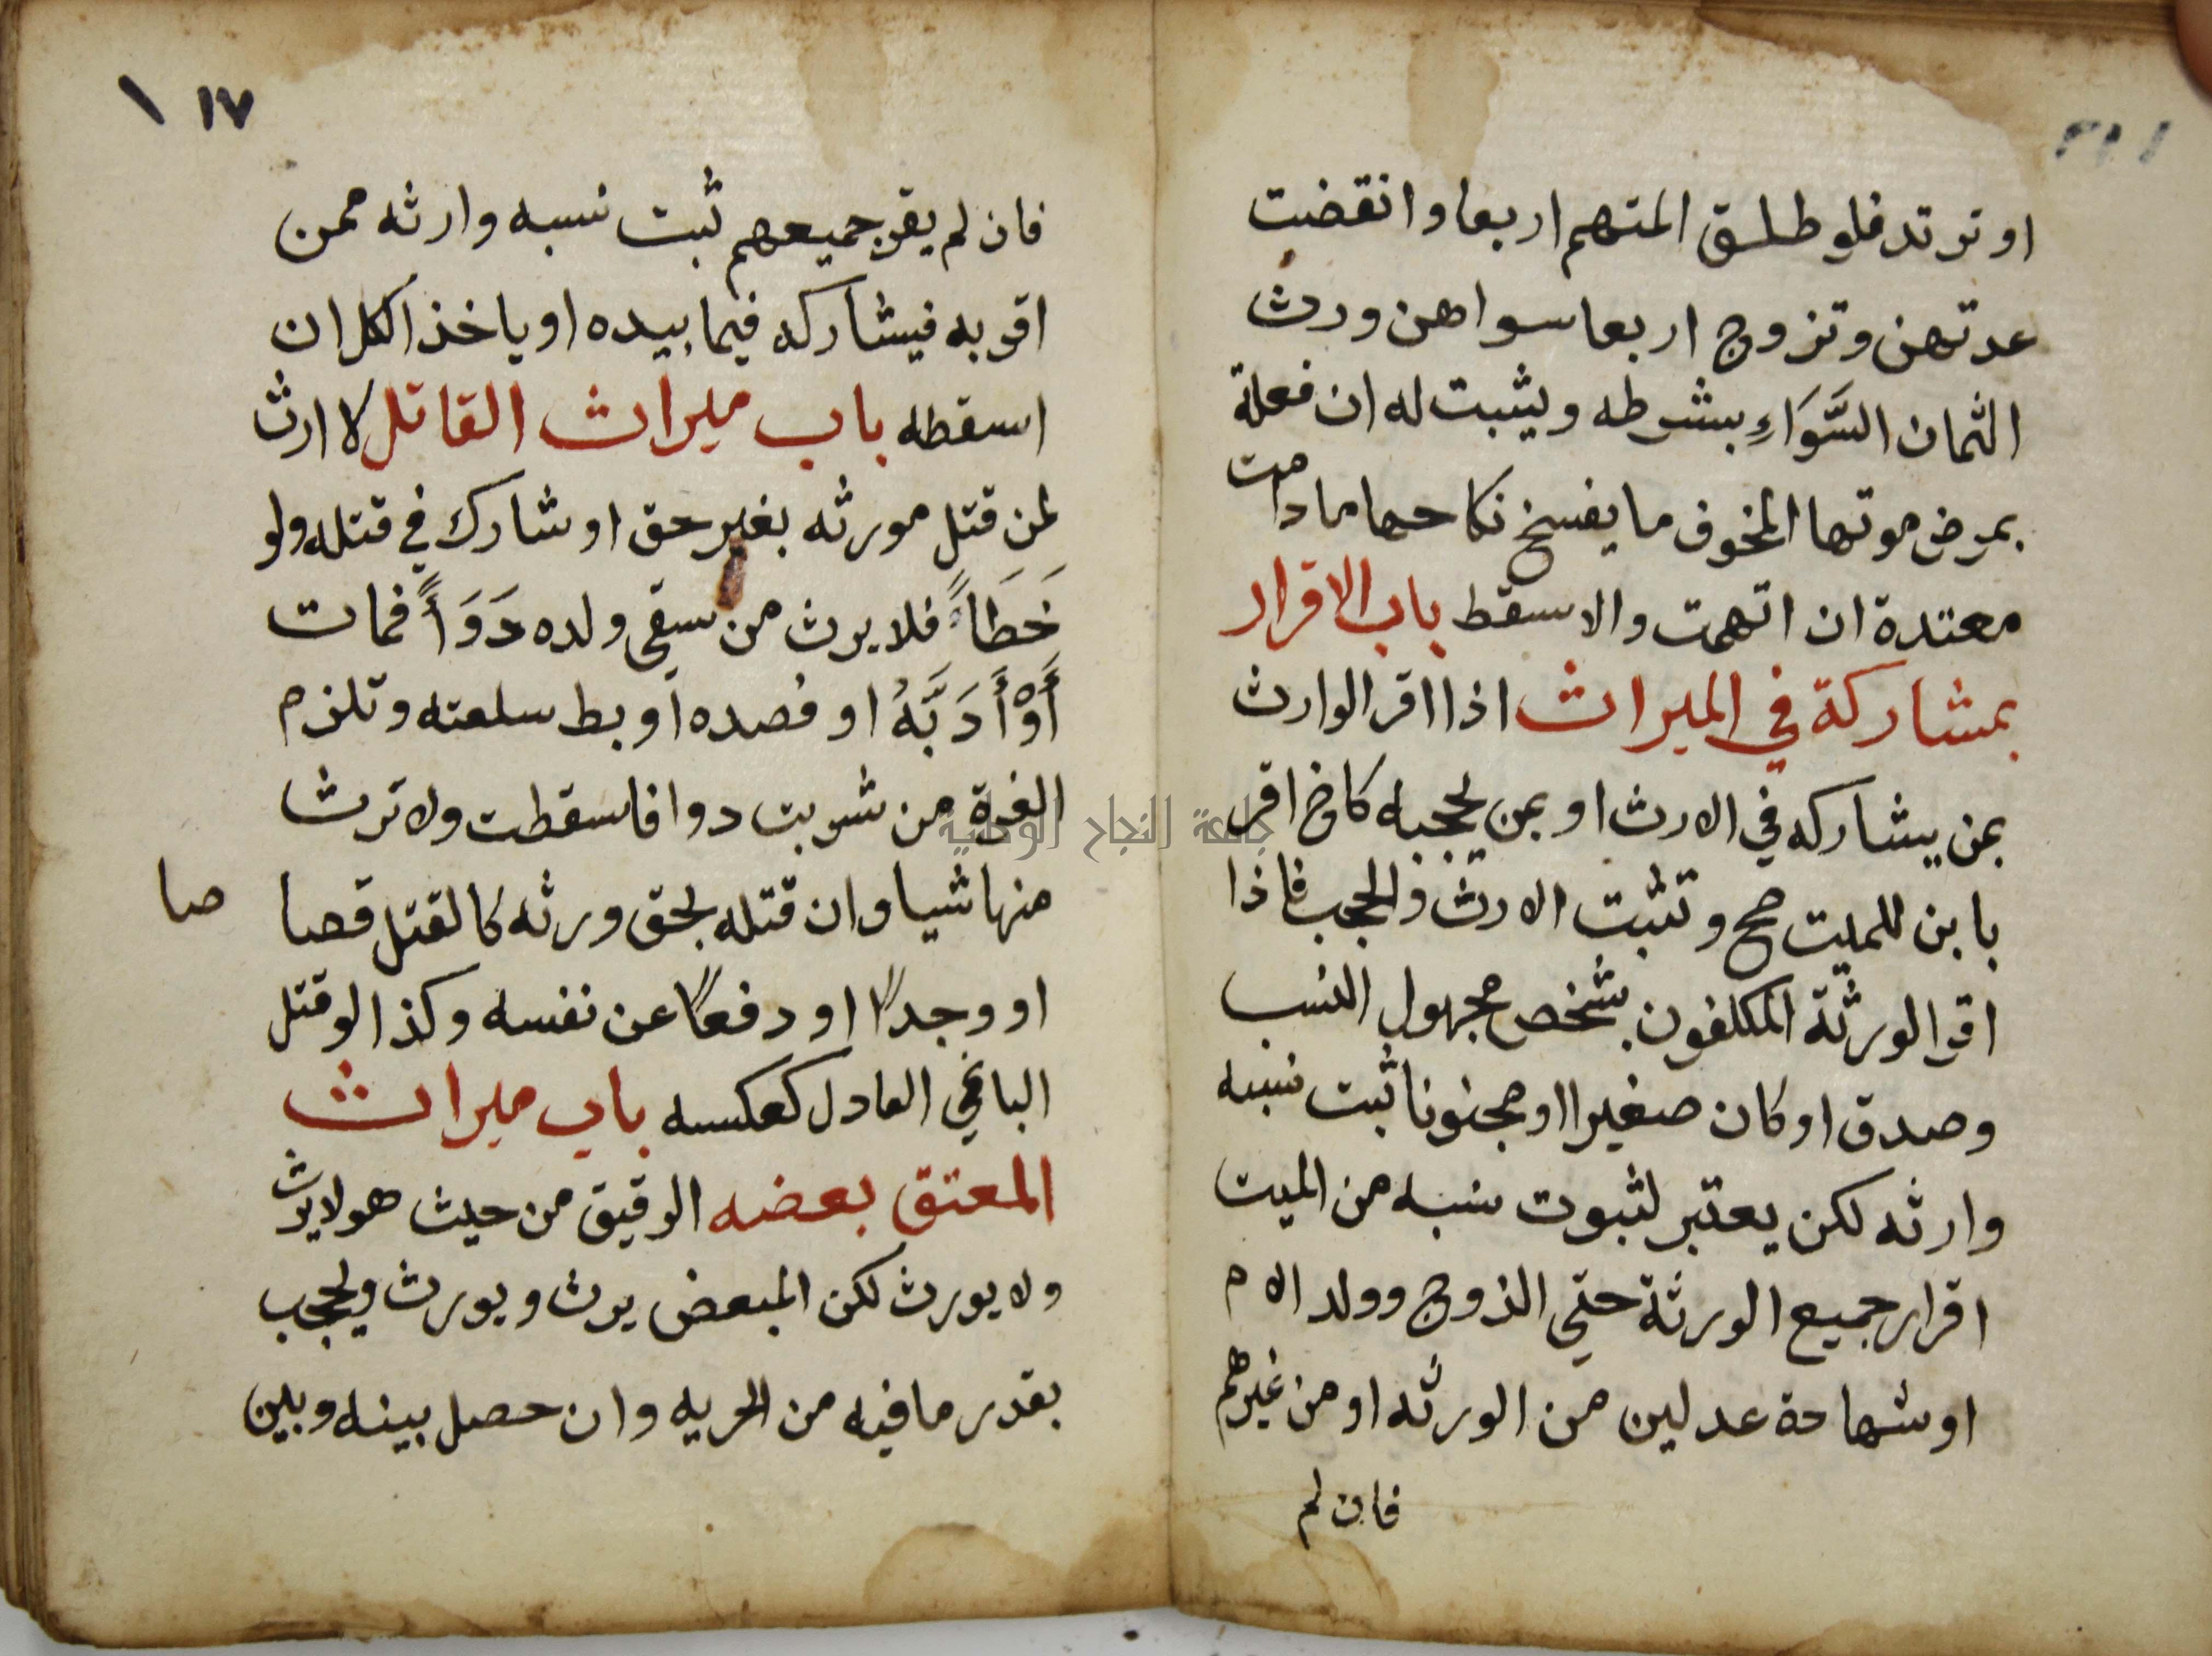 او ترتد فلو طلق المتهم اربعا وانقضت
عدتهن وتزوج اربعا سواهن ورث
الثمان السَّوَاءِ بشرطه ويثبت له ان فعلة
بمرض موتها المخوف ما يفسخ نكاحها ما دامت
معتدة ان اتهمت والا سقط باب الاقرار
بمشاركة في الميراث اذا اقر الوارث
بمن يشاركه في الارث او بمن يحجبه كاخ اقر
بابن للميت صح وتثبت الارث والحجب فاذا
اقر الورثة المكلفون بشخص مجهول النسب
وصدق او كان صغيرا او مجنونا ثبت نسبه
وارثه لكن يعتبر لثبوت نسبه من الميت
اقرار جميع الورثة حتى الزوج وولد الام
او شهادة عدلين من الورثه او من غيرهم
فان لم
١٧ ١
فان لم يقر جميعهم ثبت نسبه وارثه ممن
اقر به فيشاركه فيما بيده او ياخذ الكل ان
اسقطه باب ميراث القاتل لا ارث
لمن قتل مورثه بغير حق او شارك في قتله ولو
خَطَاً فلا يرث من سقى ولده دَوَاً فمات
أَوْ أَدَبَّهُ او فصده او بط سلعته وتلزم
الغرة من شربت دوا فاسقطت ولا ترث
منها شيا وان قتله بحق ورثه كالقتل قصا صا
او وجداً او دفعاً عن نفسه وكذا لو قتل
الباغي العادل كعكسه باب ميراث
المعتق بعضه الرقيق من حيث هو لا يرث
ولا يورث لكن المبعض يرث ويورث ويحجب
بقدر ما فيه من الحريه وان حصل بينه وبين
جامعة النجاح الوطنية